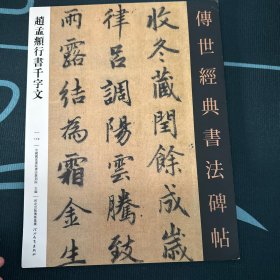 傳世經典書法碑帖
收冬藏閏餘成歲
律呂調陽雲騰致
雨露結為霜金生
趙孟頫行書千字文